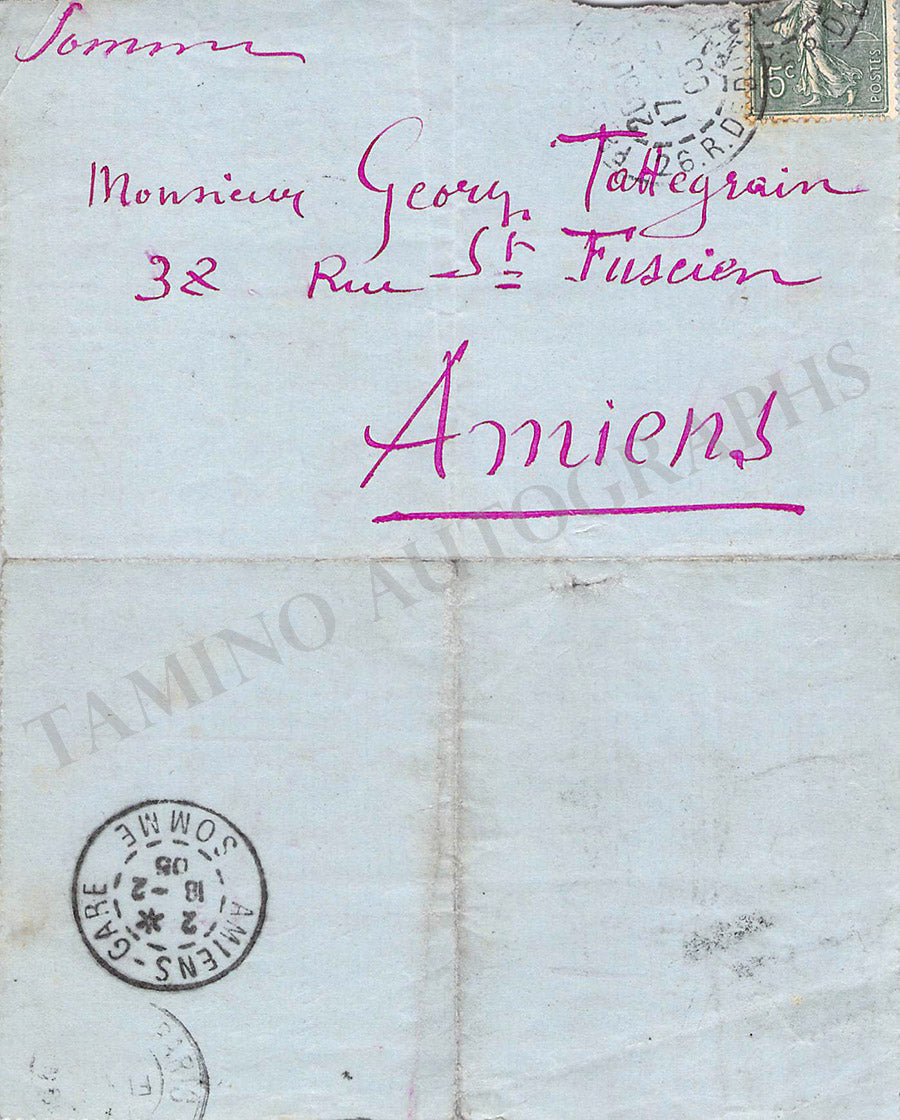 Somme
15c
POSTES
Monsieur Georg Tattegrain
32 Rue St Fuscien
Amiens
TAMINO AUTOGRAPHS
AMIENS-GARE
SOMME
2 *
18 -2
05
PARIS